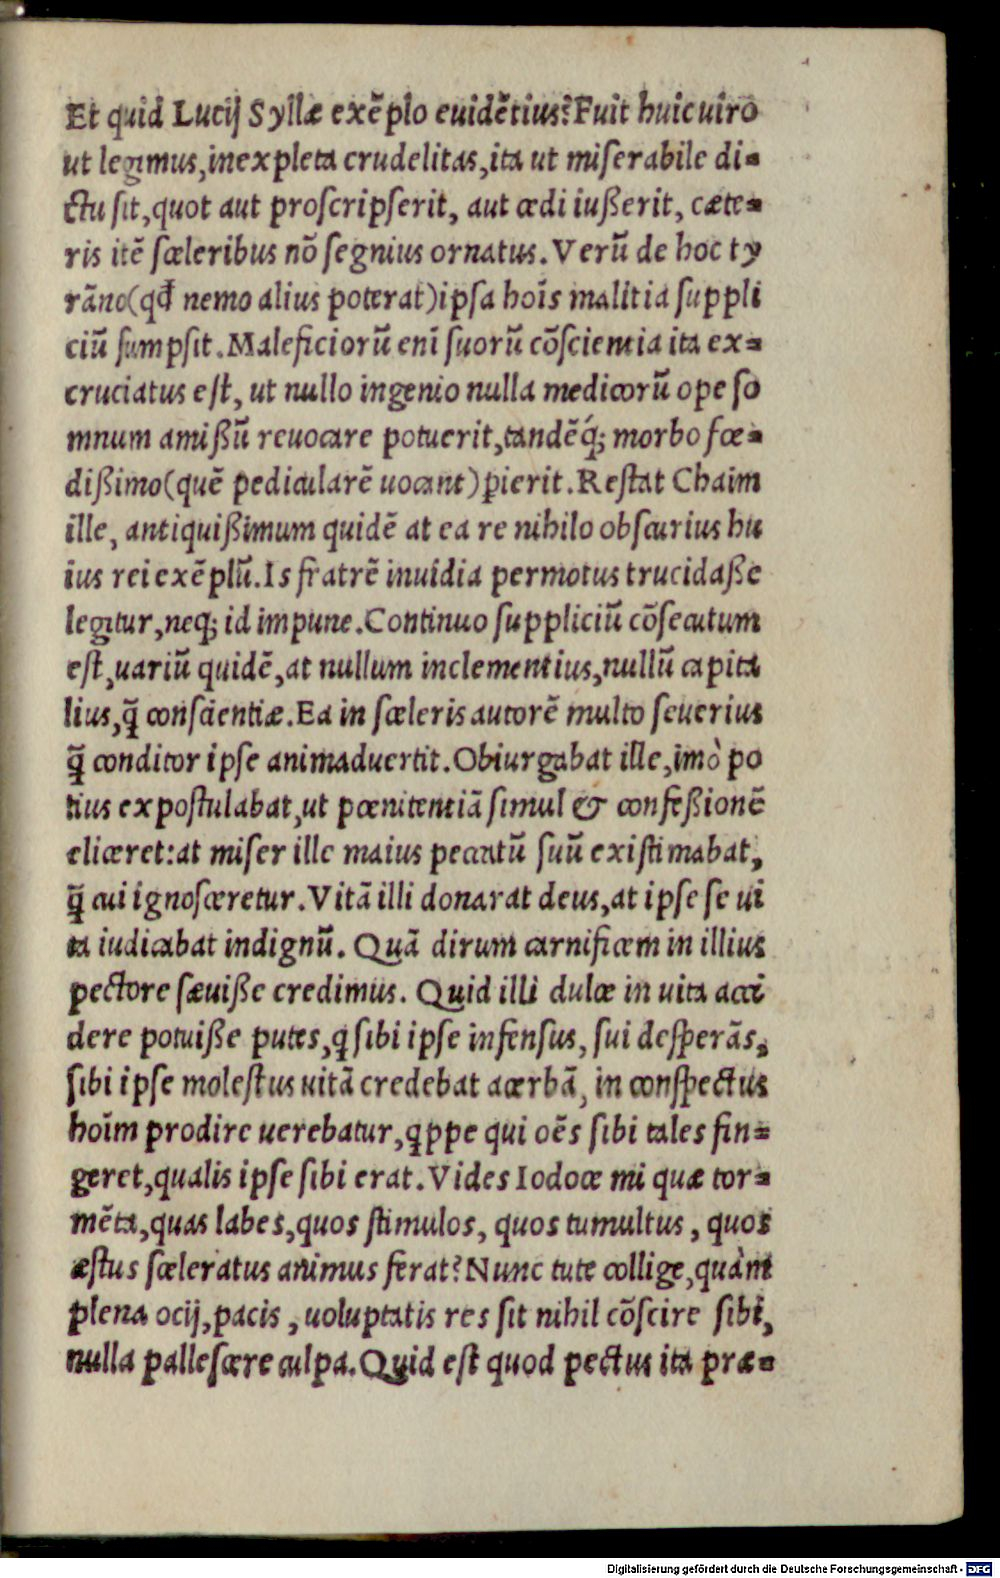 Et quid Lucij Syllæ exẽplo euidẽtius? Fuit huic uiro
ut legimus, inexpleta crudelitas, ita ut miserabile di-
ctu sit, quot aut proscripserit, aut cædi iußerit, cæte-
ris itẽ sceleribus nõ segnius ornatus. Verũ de hoc ty
rãno (qd̃ nemo alius poterat) ipsa hoĩs malitia suppli
ciũ sumpsit. Maleficiorũ enĩ suorũ cõscientia ita ex-
cruciatus est, ut nullo ingenio nulla medicorũ ope so
mnum amißũ reuocare potuerit, tandẽq́; morbo fœ-
dißimo (quẽ pedicularẽ uocant) ꝑierit. Restat Chaim
ille, antiquißimum quidẽ at ea re nihilo obscurius hu
ius rei exẽplũ. Is fratrẽ inuidia permotus trucidaße
legitur, neq; id impune. Continuo suppliciũ cõsecutum
est, uariũ quidẽ, at nullum inclementius, nullũ capita
lius, q̃ conscientiæ. Ea in sceleris autorẽ multo seuerius
q̃ conditor ipse animaduertit. Obiurgabat ille, imò po
tius expostulabat, ut pœnitentiã simul & confeßionẽ
eliceret: at miser ille maius peccatũ suũ existimabat,
q̃ cui ignosceretur. Vitã illi donarat deus, at ipse se ui
ta iudicabat indignũ. Quã dirum carnificem in illius
pectore sæuiße credimus. Quid illi dulce in uita acci
dere potuiße putes, q sibi ipse infensus, sui desperãs,
sibi ipse molestus uitã credebat acerbã, in conspectus
hoĩm prodire uerebatur, qppe qui oẽs sibi tales fin-
geret, qualis ipse sibi erat. Vides Iodoce mi quæ tor-
mẽta, quas labes, quos stimulos, quos tumultus, quos
æstus sceleratus animus ferat? Nunc tute collige, quàm
plena ocij, pacis, uoluptatis res sit nihil cõscire sibi,
nulla pallescere culpa. Quid est quod pectus ita præ-
Digitalisierung gefördert durch die Deutsche Forschungsgemeinschaft - DFG